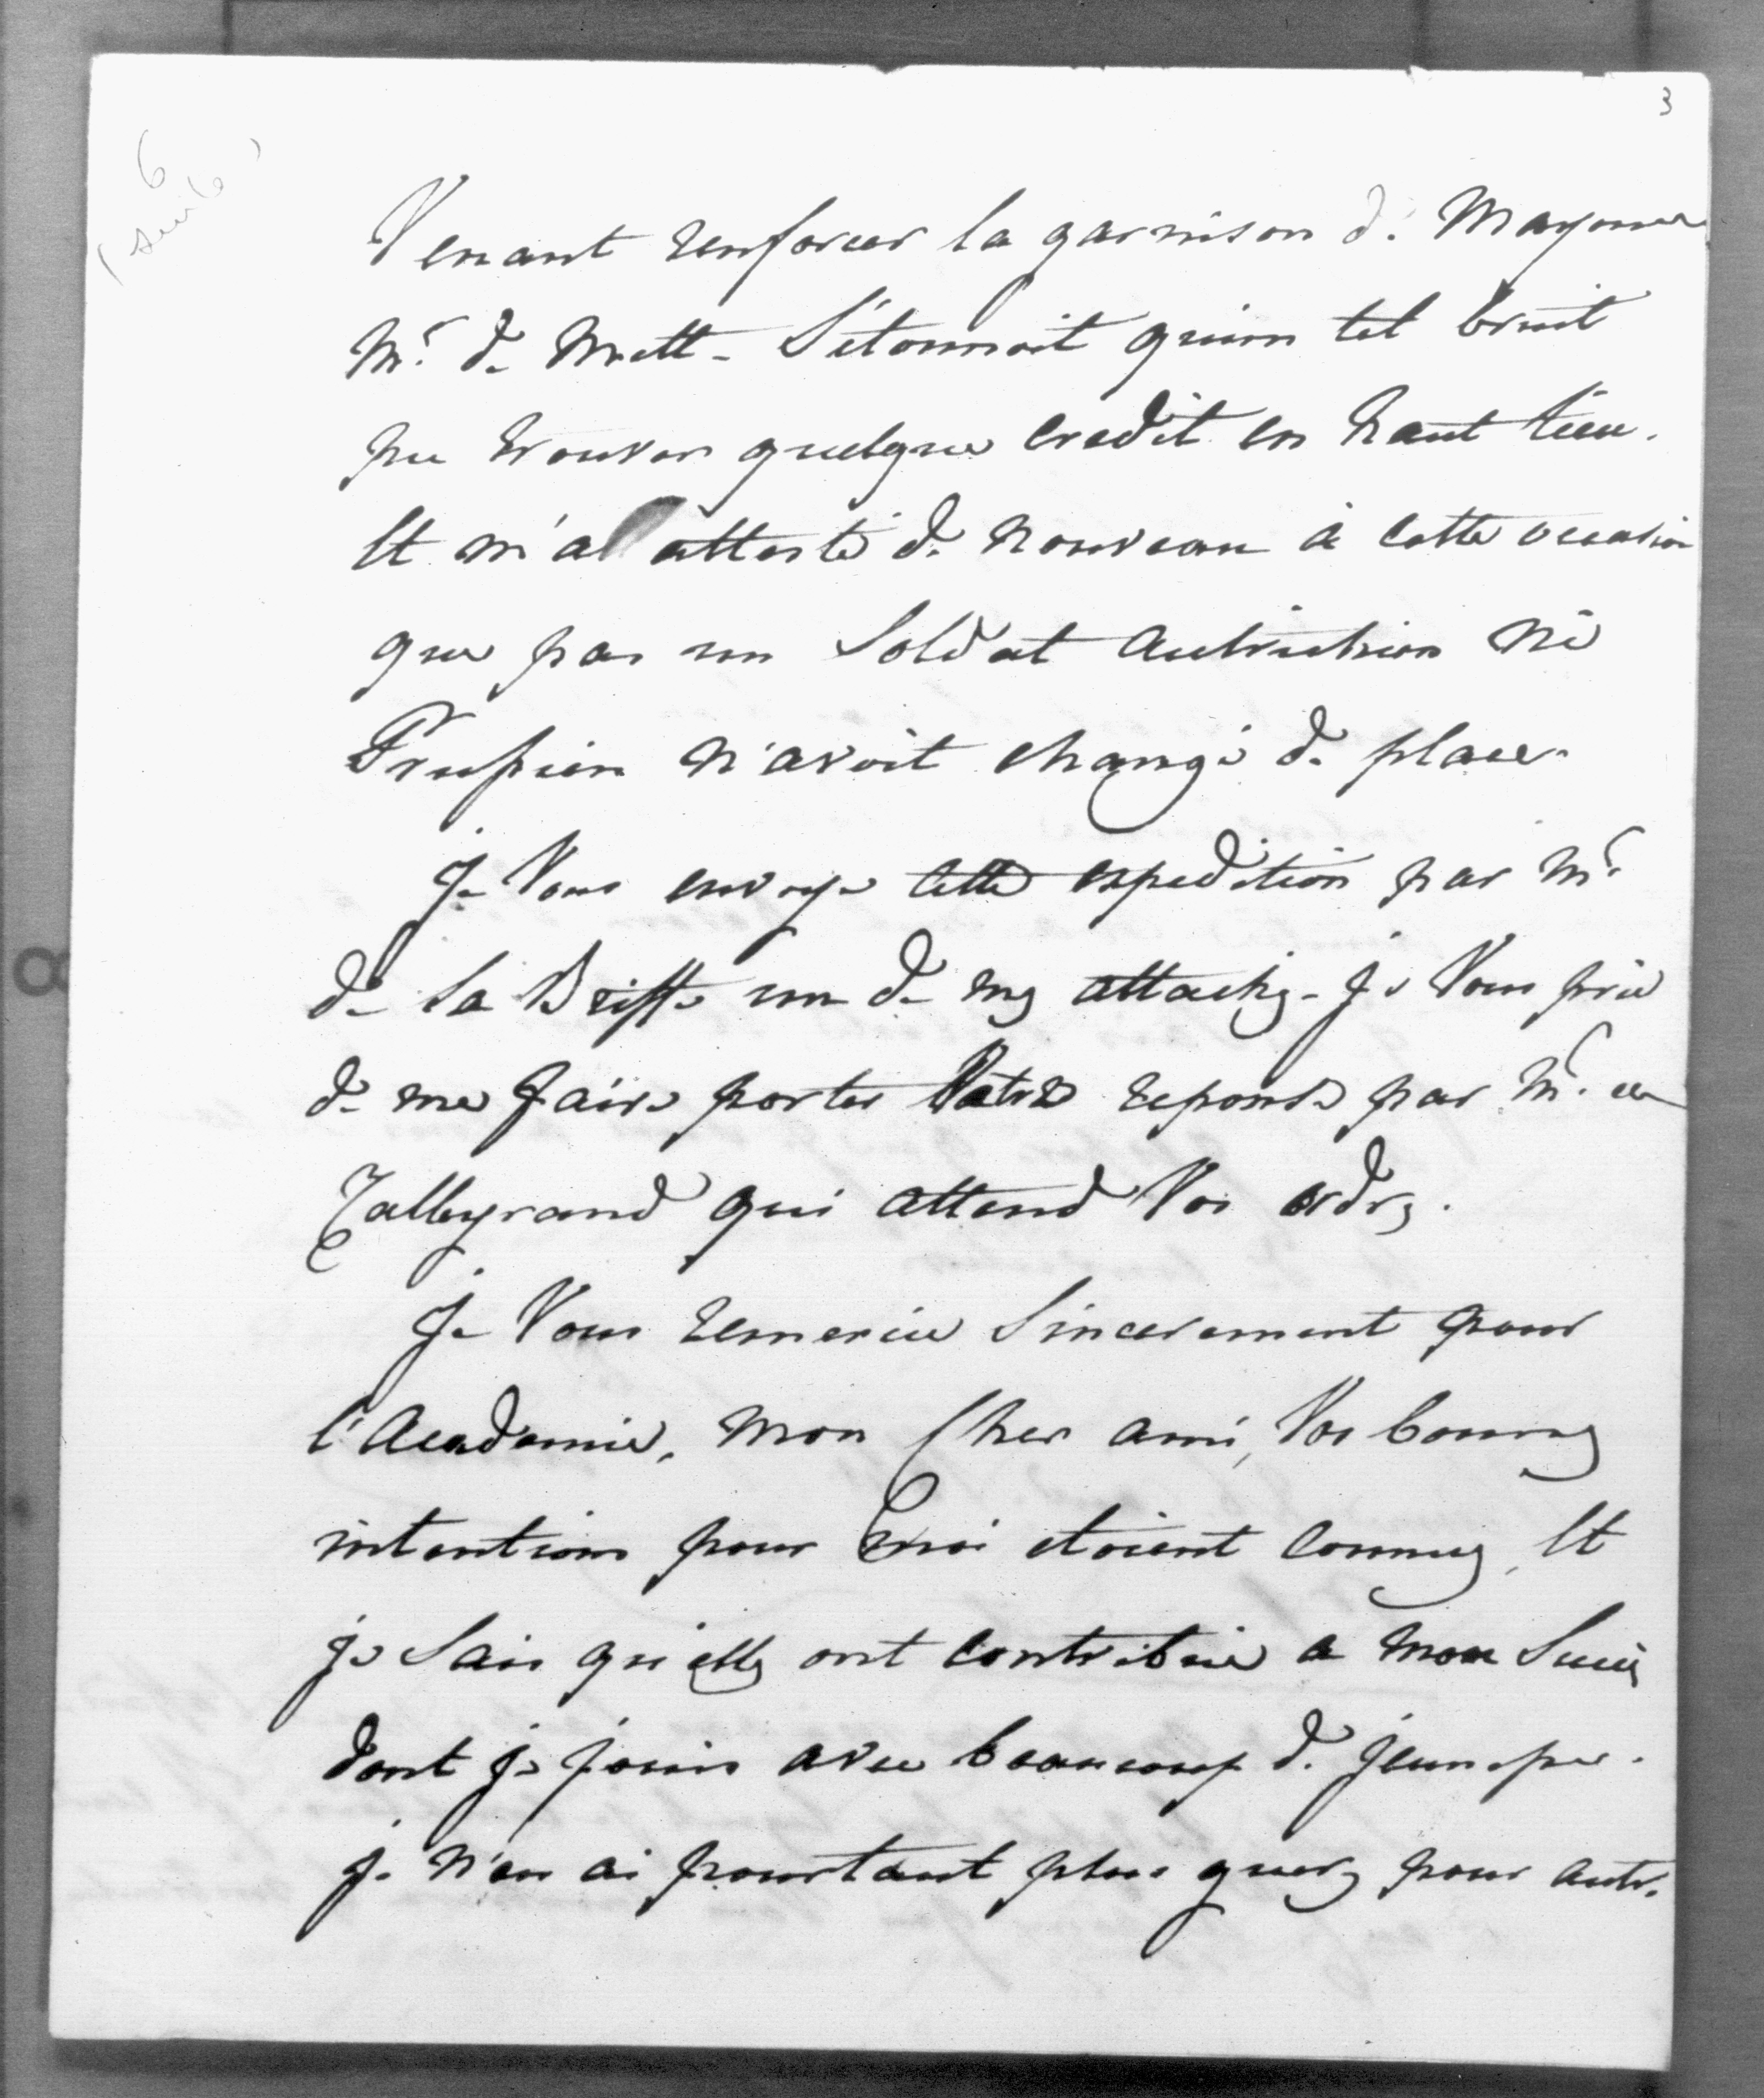 3
6
(suite)
Venant renforcer la garnison de Mayence
Mr. de Mett- S'étonnoit qu'un tel bruit
pu trouver quelque credit en haut lieu.
Et m'a attesté de nouveau à cette occasion
que pas un Soldat autrichien ni
Prussien n'avoit changé de place.
Je Vous envoye cette expedition par Mr.
de La Briffe un de mes attachés. je Vous prie
de me faire porter Votre reponse par Mr. de
Talleyrand qui attend Vos ordres.
Je Vous remercie Sincerement pour
l'Academie, mon Cher ami, Vos bonnes
intentions pour moi etoient connues, Et
je Sais qu'elles ont contribué a mon Succès
dont je jouis avec beaucoup de jeunesse.
je n'en ai pourtant plus gueres pour autre